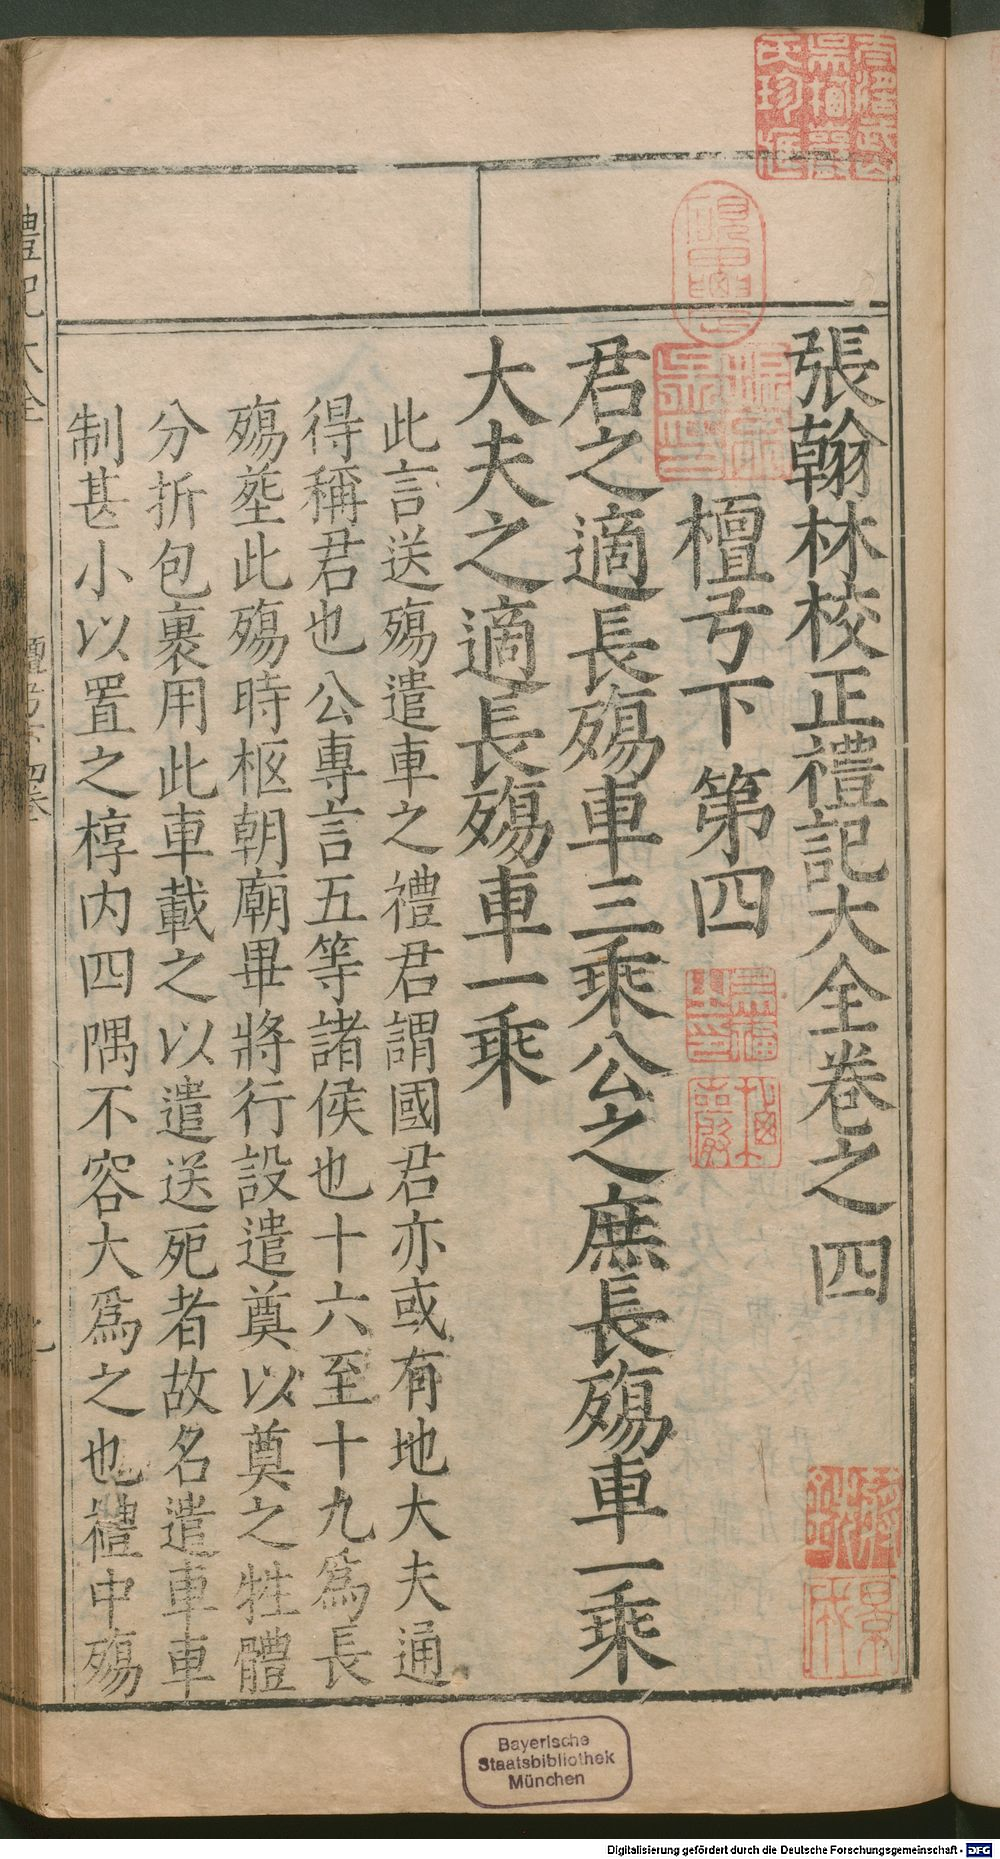 張翰林校正禮記大全卷之四
檀弓下第四
君之適長殤車三乘公之庶長殤車一乘
大夫之適長殤車一乘
此言送殤遣車之禮君謂國君亦或有地大夫通
得稱君也公專言五等諸侯也十六至十九爲長
殤塟此殤時柩朝廟畢將行設遣奠以奠之牲體
分折包裹用此車載之以遣送死者故名遣車車
制甚小以置之椁内四隅不容大爲之也禮中殤
禮記大全
Bayerische
Staatsbibliothek
München
Digitalisierung gefördert durch die Deutsche Forschungsgemeinschaft - DFG